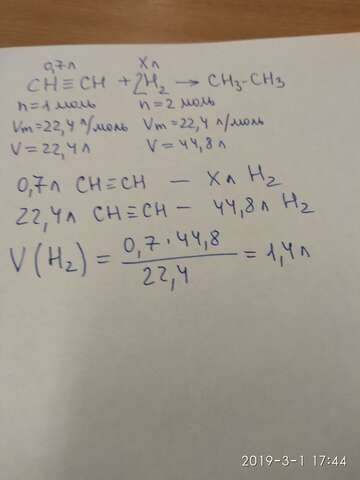 0,7л Xл
CH≡CH + 2H₂ → CH₃-CH₃
n=1 моль n=2 моль
Vm=22,4 л/моль Vm=22,4 л/моль
V=22,4л V=44,8л
0,7л CH≡CH — Xл H₂
22,4л CH≡CH — 44,8л H₂
V(H₂) = 0,7·44,8 / 22,4 = 1,4л
2019-3-1 17:44